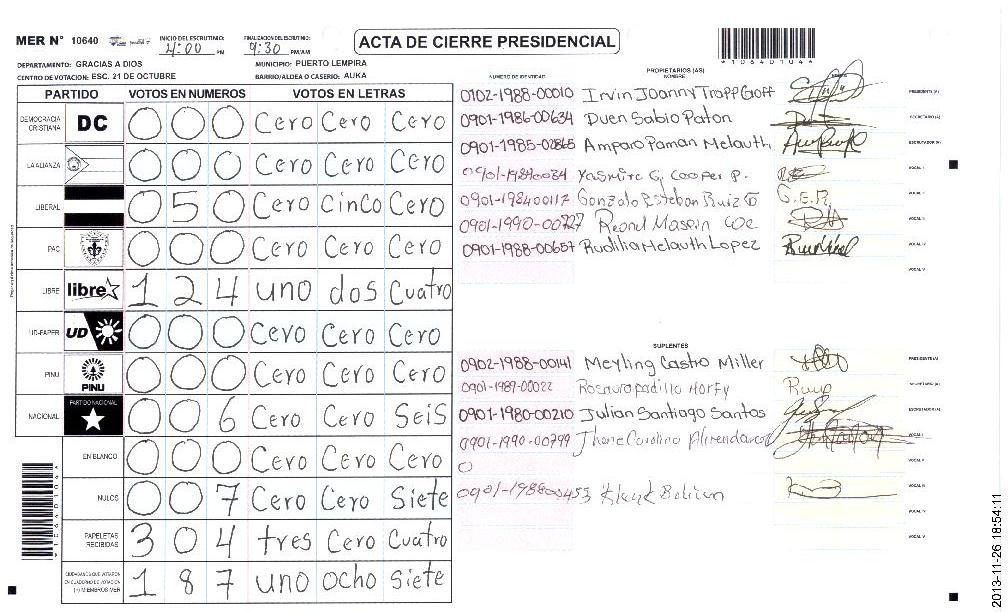 MER N° 10640 INICIO DEL ESCRUTINIO: 4:00 PM FINALIZACION DEL ESCRUTINIO: 9:30 PM/AM ACTA DE CIERRE PRESIDENCIAL
*10640104*
DEPARTAMENTO: GRACIAS A DIOS MUNICIPIO: PUERTO LEMPIRA
CENTRO DE VOTACION: ESC. 21 DE OCTUBRE BARRIO/ALDEA O CASERIO: AUKA
PARTIDO VOTOS EN NUMEROS VOTOS EN LETRAS
DEMOCRACIA CRISTIANA DC 0 0 0 Cero Cero Cero
LA ALIANZA 0 0 0 Cero Cero Cero
LIBERAL 0 5 0 Cero Cinco Cero
PAC 0 0 0 Cero Cero Cero
LIBRE libre 1 2 4 uno dos Cuatro
UD-FAPER UD 0 0 0 Cero Cero Cero
PINU PINU 0 0 0 Cero Cero Cero
NACIONAL PARTIDO NACIONAL 0 0 6 Cero Cero Seis
EN BLANCO 0 0 0 Cero Cero Cero
NULOS 0 0 7 Cero Cero Siete
PAPELETAS RECIBIDAS 3 0 4 tres Cero Cuatro
CIUDADANOS QUE VOTARON EN CUADERNO DE VOTACION (+) MIEMBROS MER 1 8 7 uno ocho Siete
*10640104*
PROPIETARIOS (AS)
NUMERO DE IDENTIDAD NOMBRE
0102-1988-00010 Irvin Joanny Trapp Goff PRESIDENTE (A)
0901-1986-00634 Duen Sabio Paton SECRETARIO (A)
0901-1985-02865 Amparo Paman Melauth ESCRUTADOR (A)
Yasmire G. Cooper P. VOCAL I
0901-198400117 Gonzalo Esteban Ruiz G G.E.R. VOCAL II
0901-1990-00727 VOCAL III
0901-1988-00657 Rudilia Melauth Lopez VOCAL IV
VOCAL V
SUPLENTES
0902-1988-00141 Meyling Castro Miller PRESIDENTE (A)
0901-1989-00022 SECRETARIO (A)
0901-1980-00210 Julian Santiago Santos ESCRUTADOR (A)
0901-1990-00799 VOCAL I
0 VOCAL II
0901-198800453 VOCAL III
VOCAL IV
VOCAL V
2013-11-26 18:54:11